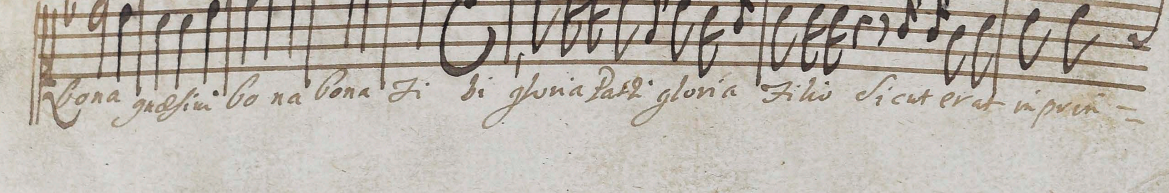 bona quæsivi bo na bona Ti bi gloria Patri gloria Filio Sicut erat in prin =